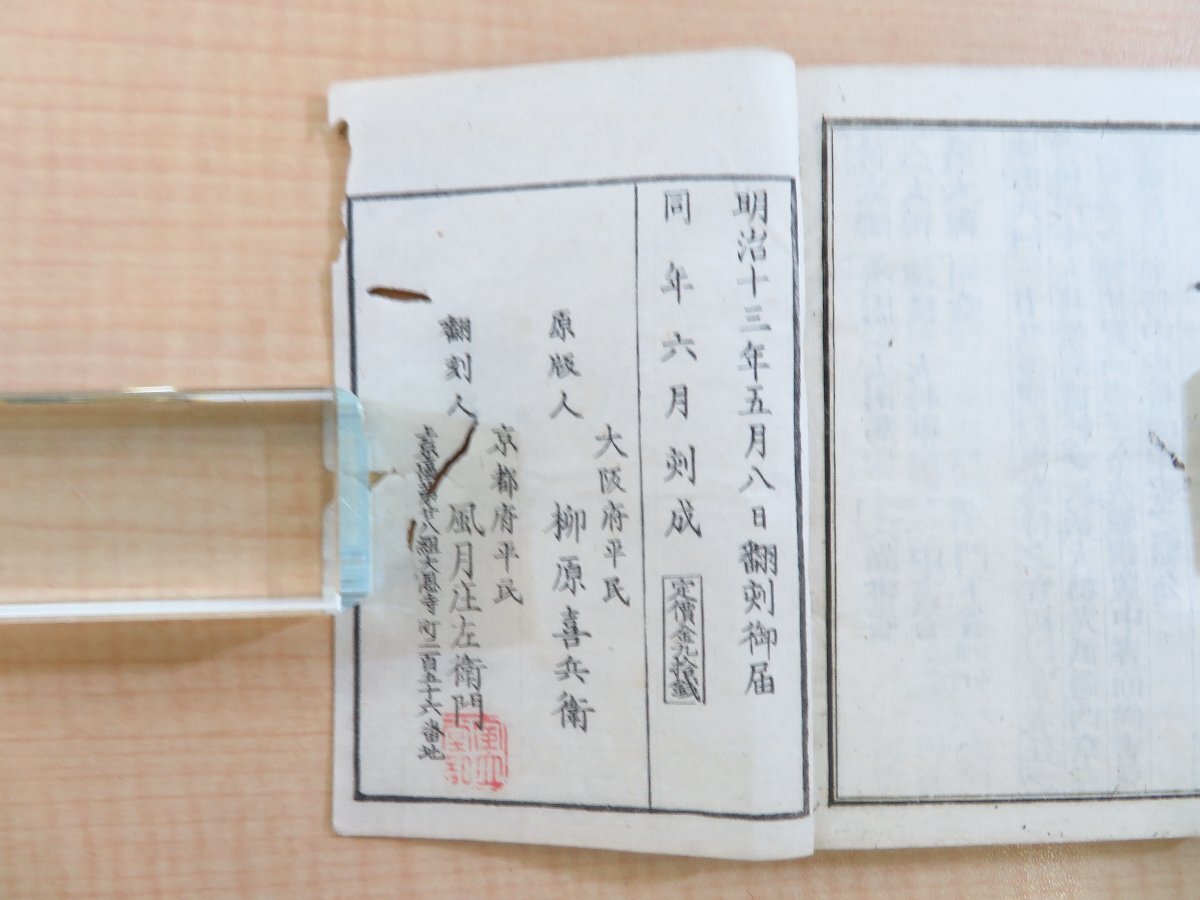 明治十三年五月八日翻刻御届
同年六月刻成
定價金九拾錢
大阪府平民
原版人
柳原喜兵衛
京都府平民
翻刻人
風月庄左衛門
廿八組大恩寺町二百五十六番地